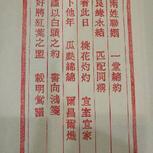 兩姓聯姻 一堂締約
良緣永結 匹配同稱
看此日 桃花灼灼 宜室宜家
卜他年 瓜瓞綿綿 爾昌爾熾
謹以白頭之約 書向鴻箋
好將紅葉之盟 載明鴛譜